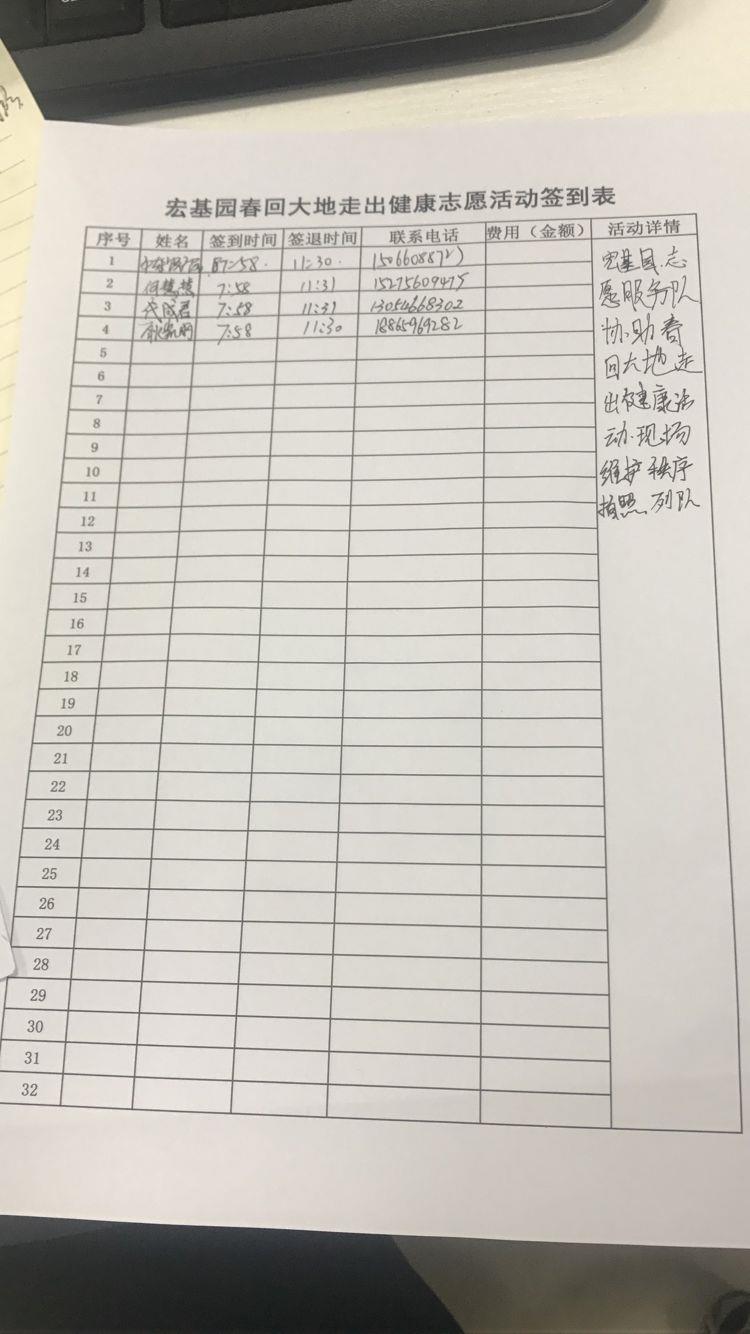 宏基园春回大地走出健康志愿活动签到表
序号 姓名 签到时间 签退时间 联系电话 费用（金额） 活动详情
1 7:58. 11:30.
2 何慧慧 7:58 11:31 15275609475
3 代成君 7:58 11:31 13054668302
4 7:58 11:30 18865969282
5
6
7
8
9
10
11
12
13
14
15
16
17
18
19
20
21
22
23
24
25
26
27
28
29
30
31
32
宏基园志
愿服务队
协助春
回大地走
出健康活
动现场
维护秩序
拍照列队